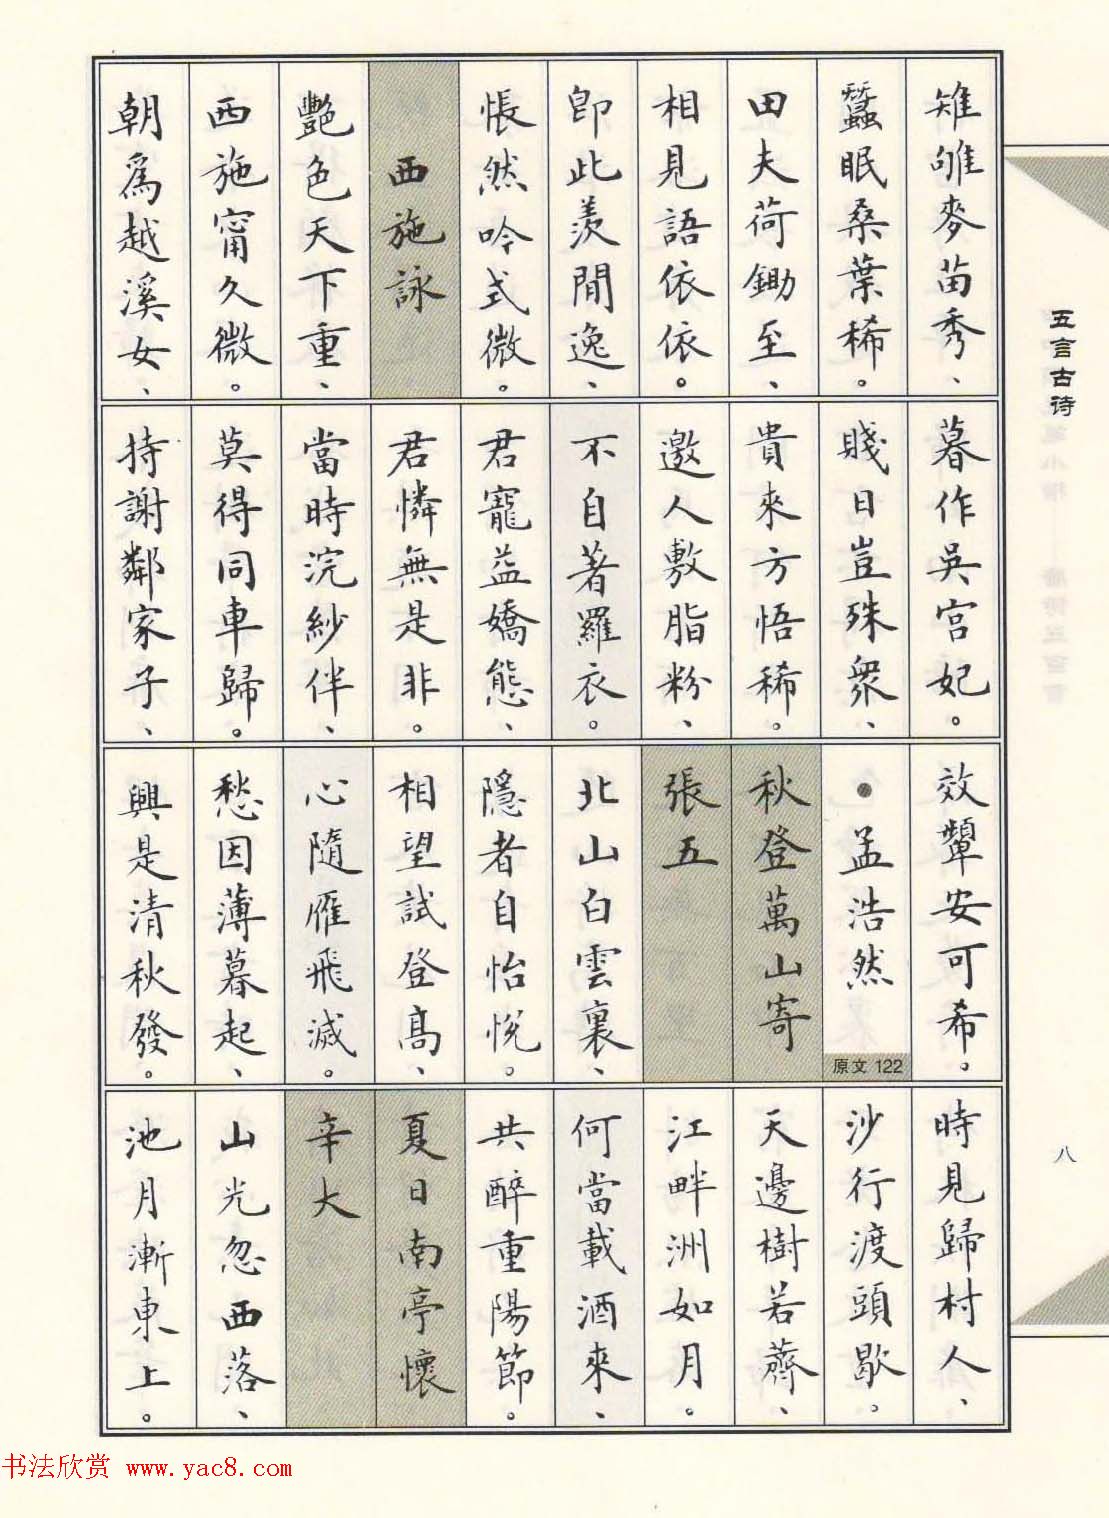 五言古诗
雉雊麥苗秀、
蠶眠桑葉稀。
田夫荷鋤至、
相見語依依。
即此羨閒逸、
悵然吟式微。
西施詠
艷色天下重、
西施甯久微。
朝爲越溪女、
暮作吳宮妃。
賤日豈殊衆、
貴來方悟稀。
邀人敷脂粉、
不自著羅衣。
君寵益嬌態、
君憐無是非。
當時浣紗伴、
莫得同車歸。
持謝鄰家子、
效顰安可希。
●孟浩然
原文 122
秋登萬山寄
張五
北山白雲裏、
隱者自怡悅。
相望試登高、
心隨雁飛滅。
愁因薄暮起、
興是清秋發。
時見歸村人、
沙行渡頭歇。
天邊樹若薺、
江畔洲如月。
何當載酒來、
共醉重陽節。
夏日南亭懷
辛大
山光忽西落、
池月漸東上。
八
书法欣赏 www.yac8.com